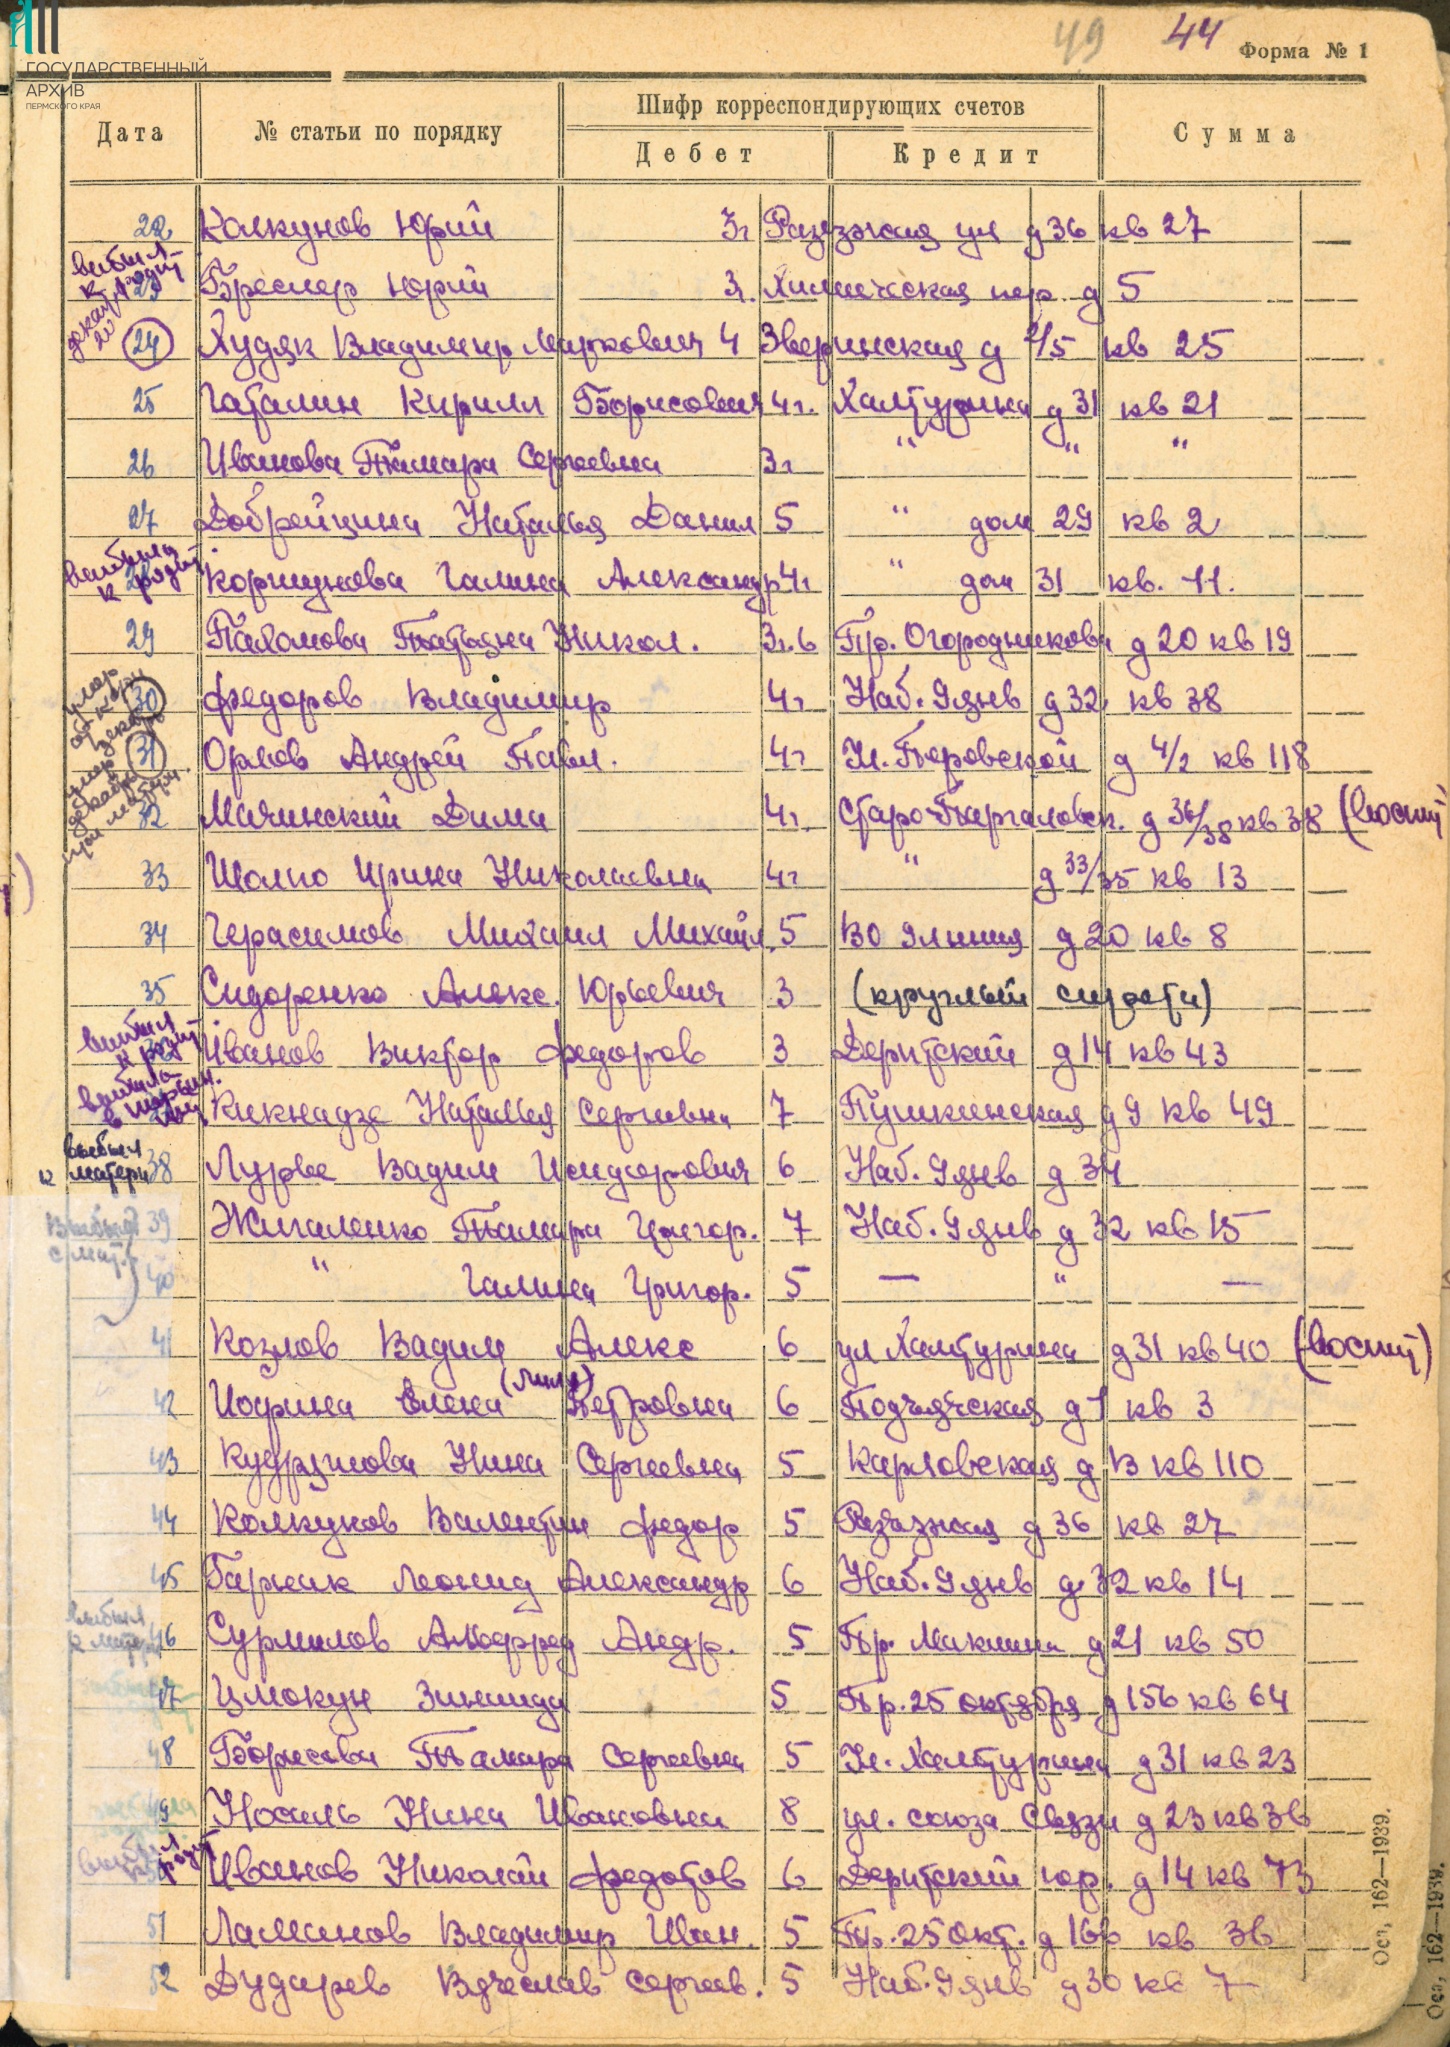 ГОСУДАРСТВЕННЫЙ
АРХИВ
ПЕРМСКОГО КРАЯ
49 44 Форма № 1
Дата № статьи по порядку Шифр корреспондирующих счетов Сумма
Дебет Кредит
22 Колкунов Юрий 3г Разъезжая ул д 36 кв 27
выбыл к родит.
23 Бреслер Юрий 3г. Химическая пер. д 5
24 Худяк Владимир Маркович 4 Зверинская д 2/5 кв 25
25 Гаталин Кирилл Борисович 4г. Халтурина д 31 кв 21
26 Иванова Тамара Сергеевна 3г " " "
27 Добрейцина Наталья Данил 5 " дом 29 кв 2
выбыла к родит.
28 Коршунова Галина Александр 4г " дом 31 кв. 11.
29 Пахомова Татьяна Никол. 3г.6 Пр. Огородникова д 20 кв 19
30 Федоров Владимир 4г Наб. 9 янв д 32 кв 38
31 Орлов Андрей Павл. 4г Ул. Перовской д 4/2 кв 118
32 Мачинский Дима 4г. Старо-Парголовск. д 36/38 кв 38 (воспит)
33 Шолпо Ирина Николаевна 4г " д 33/35 кв 13
34 Герасимов Михаил Михайл. 5 ВО линия д 20 кв 8
35 Сидоренко Алекс. Юрьевич 3 (круглый сирота)
выбыл к родит
Иванов Виктор Федоров 3 Дерптский д 14 кв 43
выбыла в
Кикнадзе Наталья Сергеевна 7 Пушкинская д 9 кв 49
выбыл к матери
38 Лурье Вадим Исидорович 6 Наб. 9 янв д 34
Выбыла с мат.
39 Жигаленко Тамара Григор. 7 Наб. 9 янв д 32 кв 15
40 " Галина Григор. 5 — " —
41 Козлов Вадим Алекс 6 ул Халтурина д 31 кв 40 (воспит)
42 Иоффина Елена (Лиля) Петровна 6 Подъяческая д 1 кв 3
43 Кудряшова Нина Сергеевна 5 Карловская д 13 кв 110
44 Колкунов Валентин Федор 5 Разъезжая д 36 кв 27
45 Барчак Леонид Александр 6 Наб. 9 янв д 32 кв 14
выбыл к матери
46 Сурмилов Альфред Андр. 5 Пр. Маклина д 21 кв 50
47 Цмокун Зинаида 5 Пр. 25 октября д 156 кв 64
48 Борисова Тамара Сергеевна 5 Ул. Халтурина д 31 кв 23
49 Носаль Нина Ивановна 8 ул. союза Связи д 23 кв 36
Иванов Николай Федотов 6 Дерптский пер. д 14 кв 73
51 Ламанов Владимир Иван. 5 Пр. 25 окт. д 166 кв 36
52 Дударев Вячеслав Сергеев. 5 Наб. 9 янв д 30 кв 7
Оса, 162—1939.
Оса, 162—1939.